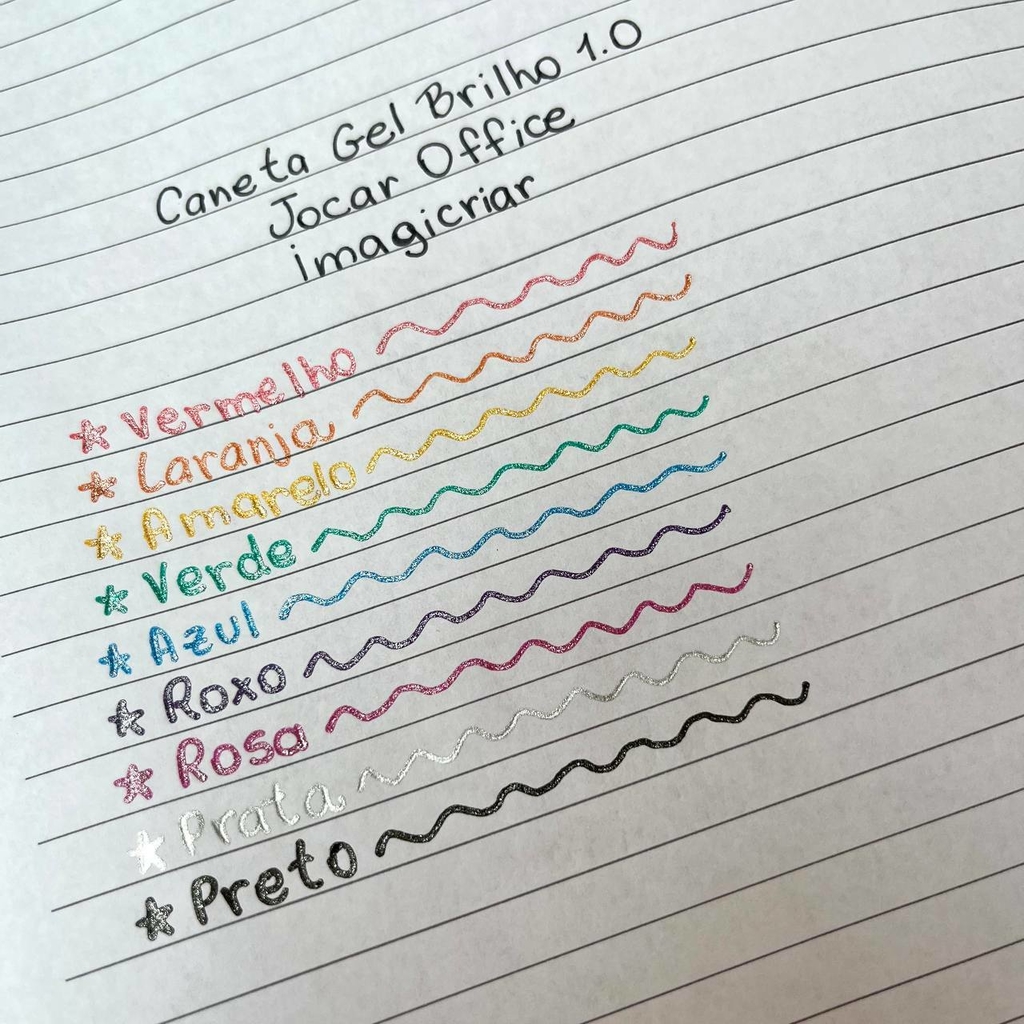 Caneta Gel Brilho 1.0
Jocar Office
imagicriar
Vermelho
Laranja
Amarelo
Verde
Azul
Roxo
Rosa
Prata
Preto